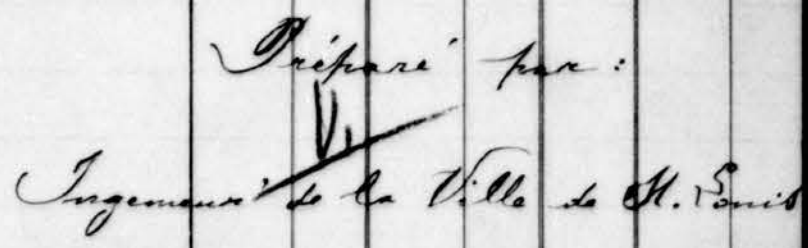 Préparé par :
Ingenieur de la Ville de St. Louis